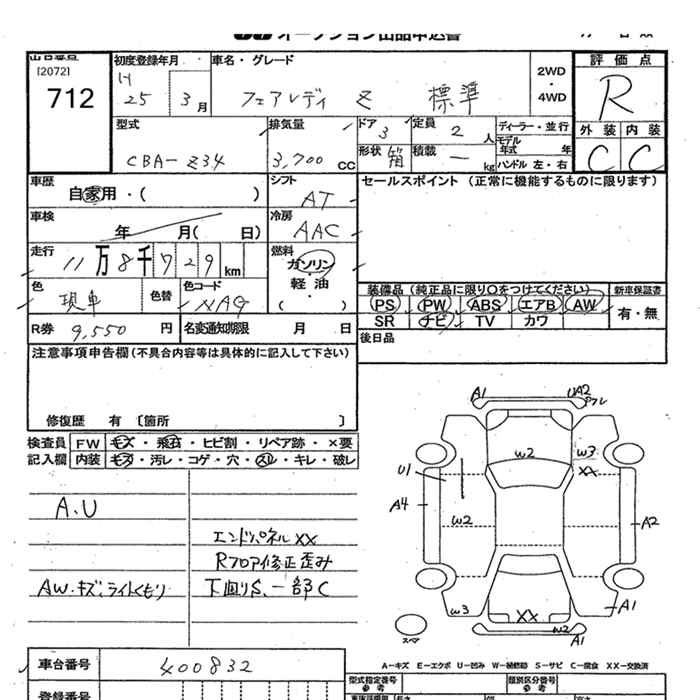 オークション出品申込書
出品番号 初度登録年月 車名・グレード 2WD・4WD 評価点
[2072]
712 H 25 3月 フェアレディ Z 標準 R
外装 内装
C C
型式 排気量 ドア 定員 ディーラー・並行
CBA-Z34 3,700cc 3 2人 モデル年式 年
形状 箱 積載 ー kg ハンドル 左・右
車歴 シフト セールスポイント (正常に機能するものに限ります)
自家用・( ) AT
車検 冷房
年 月( 日) AAC
走行 燃料
11万8千729km ガソリン
軽油
・( )
色 色替 色コード
現車 NAG
装備品 (純正品に限り○をつけてください) 新車保証書
PS PW ABS エアB AW 有・無
SR ナビ TV カワ
R券 9,550円 名変通知期限 月 日
後日品
注意事項申告欄(不具合内容等は具体的に記入して下さい)
修復歴 有 [箇所 ]
検査員 FW キズ・飛石・ヒビ割・リペア跡・×要
記入欄 内装 キズ・汚レ・コゲ・穴・スレ・キレ・破レ
A.U
エンドパネルXX
Rフロア修正歪み
AW・キズ,ライトくもり 下回りS、一部C
A1 UA2
W2 W3
XX
U1
A4
W2
A2
W3 XX W2
A1
A1
スペア
A−キズ E−エクボ U−凹み W−補修跡 S−サビ C−腐食 XX−交換済
車台番号 400832
型式指定番号 参考 類別区分番号 参考
登録番号